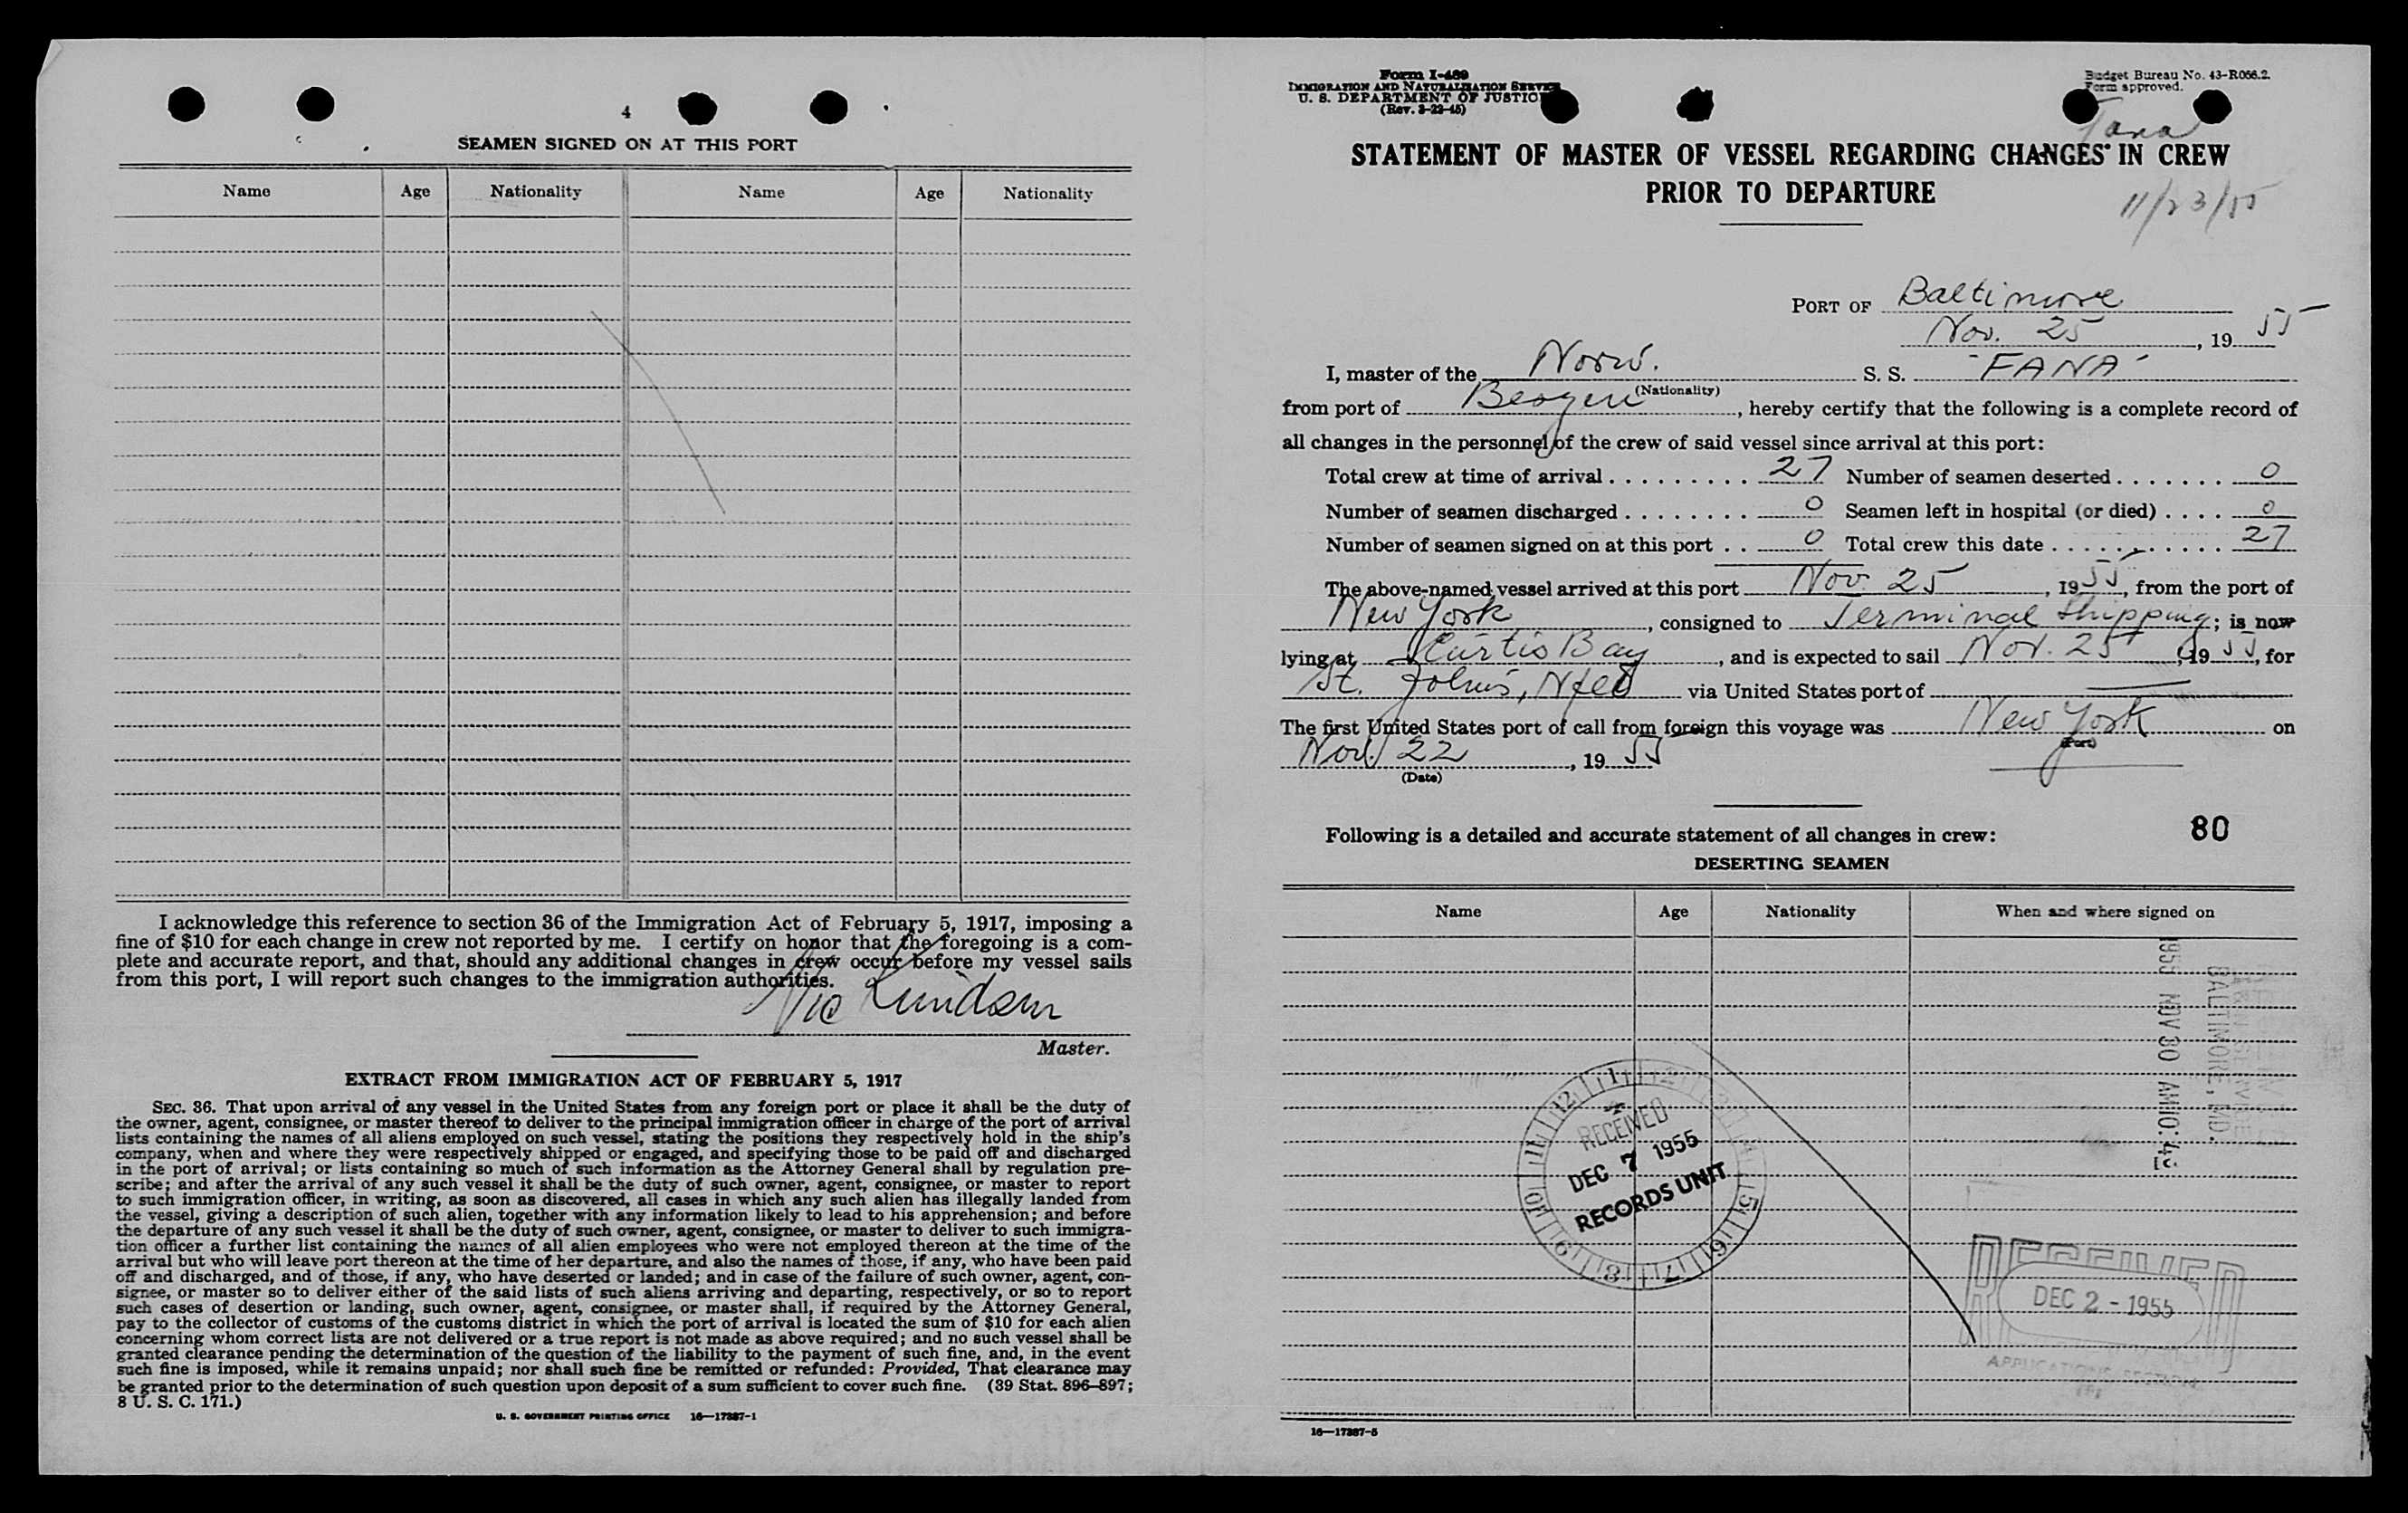 4
SEAMEN SIGNED ON AT THIS PORT
Name Age Nationality Name Age Nationality
I acknowledge this reference to section 36 of the Immigration Act of February 5, 1917, imposing a
fine of $10 for each change in crew not reported by me. I certify on honor that the foregoing is a com-
plete and accurate report, and that, should any additional changes in crew occur before my vessel sails
from this port, I will report such changes to the immigration authorities.
Master.
EXTRACT FROM IMMIGRATION ACT OF FEBRUARY 5, 1917
SEC. 36. That upon arrival of any vessel in the United States from any foreign port or place it shall be the duty of
the owner, agent, consignee, or master thereof to deliver to the principal immigration officer in charge of the port of arrival
lists containing the names of all aliens employed on such vessel, stating the positions they respectively hold in the ship's
company, when and where they were respectively shipped or engaged, and specifying those to be paid off and discharged
in the port of arrival; or lists containing so much of such information as the Attorney General shall by regulation pre-
scribe; and after the arrival of any such vessel it shall be the duty of such owner, agent, consignee, or master to report
to such immigration officer, in writing, as soon as discovered, all cases in which any such alien has illegally landed from
the vessel, giving a description of such alien, together with any information likely to lead to his apprehension; and before
the departure of any such vessel it shall be the duty of such owner, agent, consignee, or master to deliver to such immigra-
tion officer a further list containing the names of all alien employees who were not employed thereon at the time of the
arrival but who will leave port thereon at the time of her departure, and also the names of those, if any, who have been paid
off and discharged, and of those, if any, who have deserted or landed; and in case of the failure of such owner, agent, con-
signee, or master so to deliver either of the said lists of such aliens arriving and departing, respectively, or so to report
such cases of desertion or landing, such owner, agent, consignee, or master shall, if required by the Attorney General,
pay to the collector of customs of the customs district in which the port of arrival is located the sum of $10 for each alien
concerning whom correct lists are not delivered or a true report is not made as above required; and no such vessel shall be
granted clearance pending the determination of the question of the liability to the payment of such fine, and, in the event
such fine is imposed, while it remains unpaid; nor shall such fine be remitted or refunded: Provided, That clearance may
be granted prior to the determination of such question upon deposit of a sum sufficient to cover such fine. (39 Stat. 896–897;
8 U. S. C. 171.)
U. S. GOVERNMENT PRINTING OFFICE 16—17387-1
Form I-489
IMMIGRATION AND NATURALIZATION SERVICE
U. S. DEPARTMENT OF JUSTICE
(Rev. 3-22-45)
Budget Bureau No. 43-R066.2.
Form approved.
Fana
STATEMENT OF MASTER OF VESSEL REGARDING CHANGES IN CREW
PRIOR TO DEPARTURE
11/23/55
PORT OF Baltimore
Nov. 25, 1955
I, master of the Norw. S. S. "FANA"
(Nationality)
from port of Bergen, hereby certify that the following is a complete record of
all changes in the personnel of the crew of said vessel since arrival at this port:
Total crew at time of arrival . . . . . . . . . . 27 Number of seamen deserted . . . . . . . 0
Number of seamen discharged . . . . . . . . 0 Seamen left in hospital (or died) . . . . 0
Number of seamen signed on at this port . . 0 Total crew this date . . . . . . . . . . 27
The above-named vessel arrived at this port Nov. 25, 1955, from the port of
New York, consigned to Terminal Shipping; is now
lying at Curtis Bay, and is expected to sail Nov. 25, 1955, for
St. John's, Nfld via United States port of —
The first United States port of call from foreign this voyage was New York on
(Port)
Nov. 22, 1955
(Date)
80
Following is a detailed and accurate statement of all changes in crew:
DESERTING SEAMEN
Name Age Nationality When and where signed on
1955 NOV 30 AM10:43
BALTIMORE, MD.
12 1 2 3 4 5 6 7 8 9 10 11
RECEIVED
DEC 7 1955
RECORDS UNIT
RECEIVED
DEC 2 - 1955
APPLICATIONS SECTION
16—17387-5